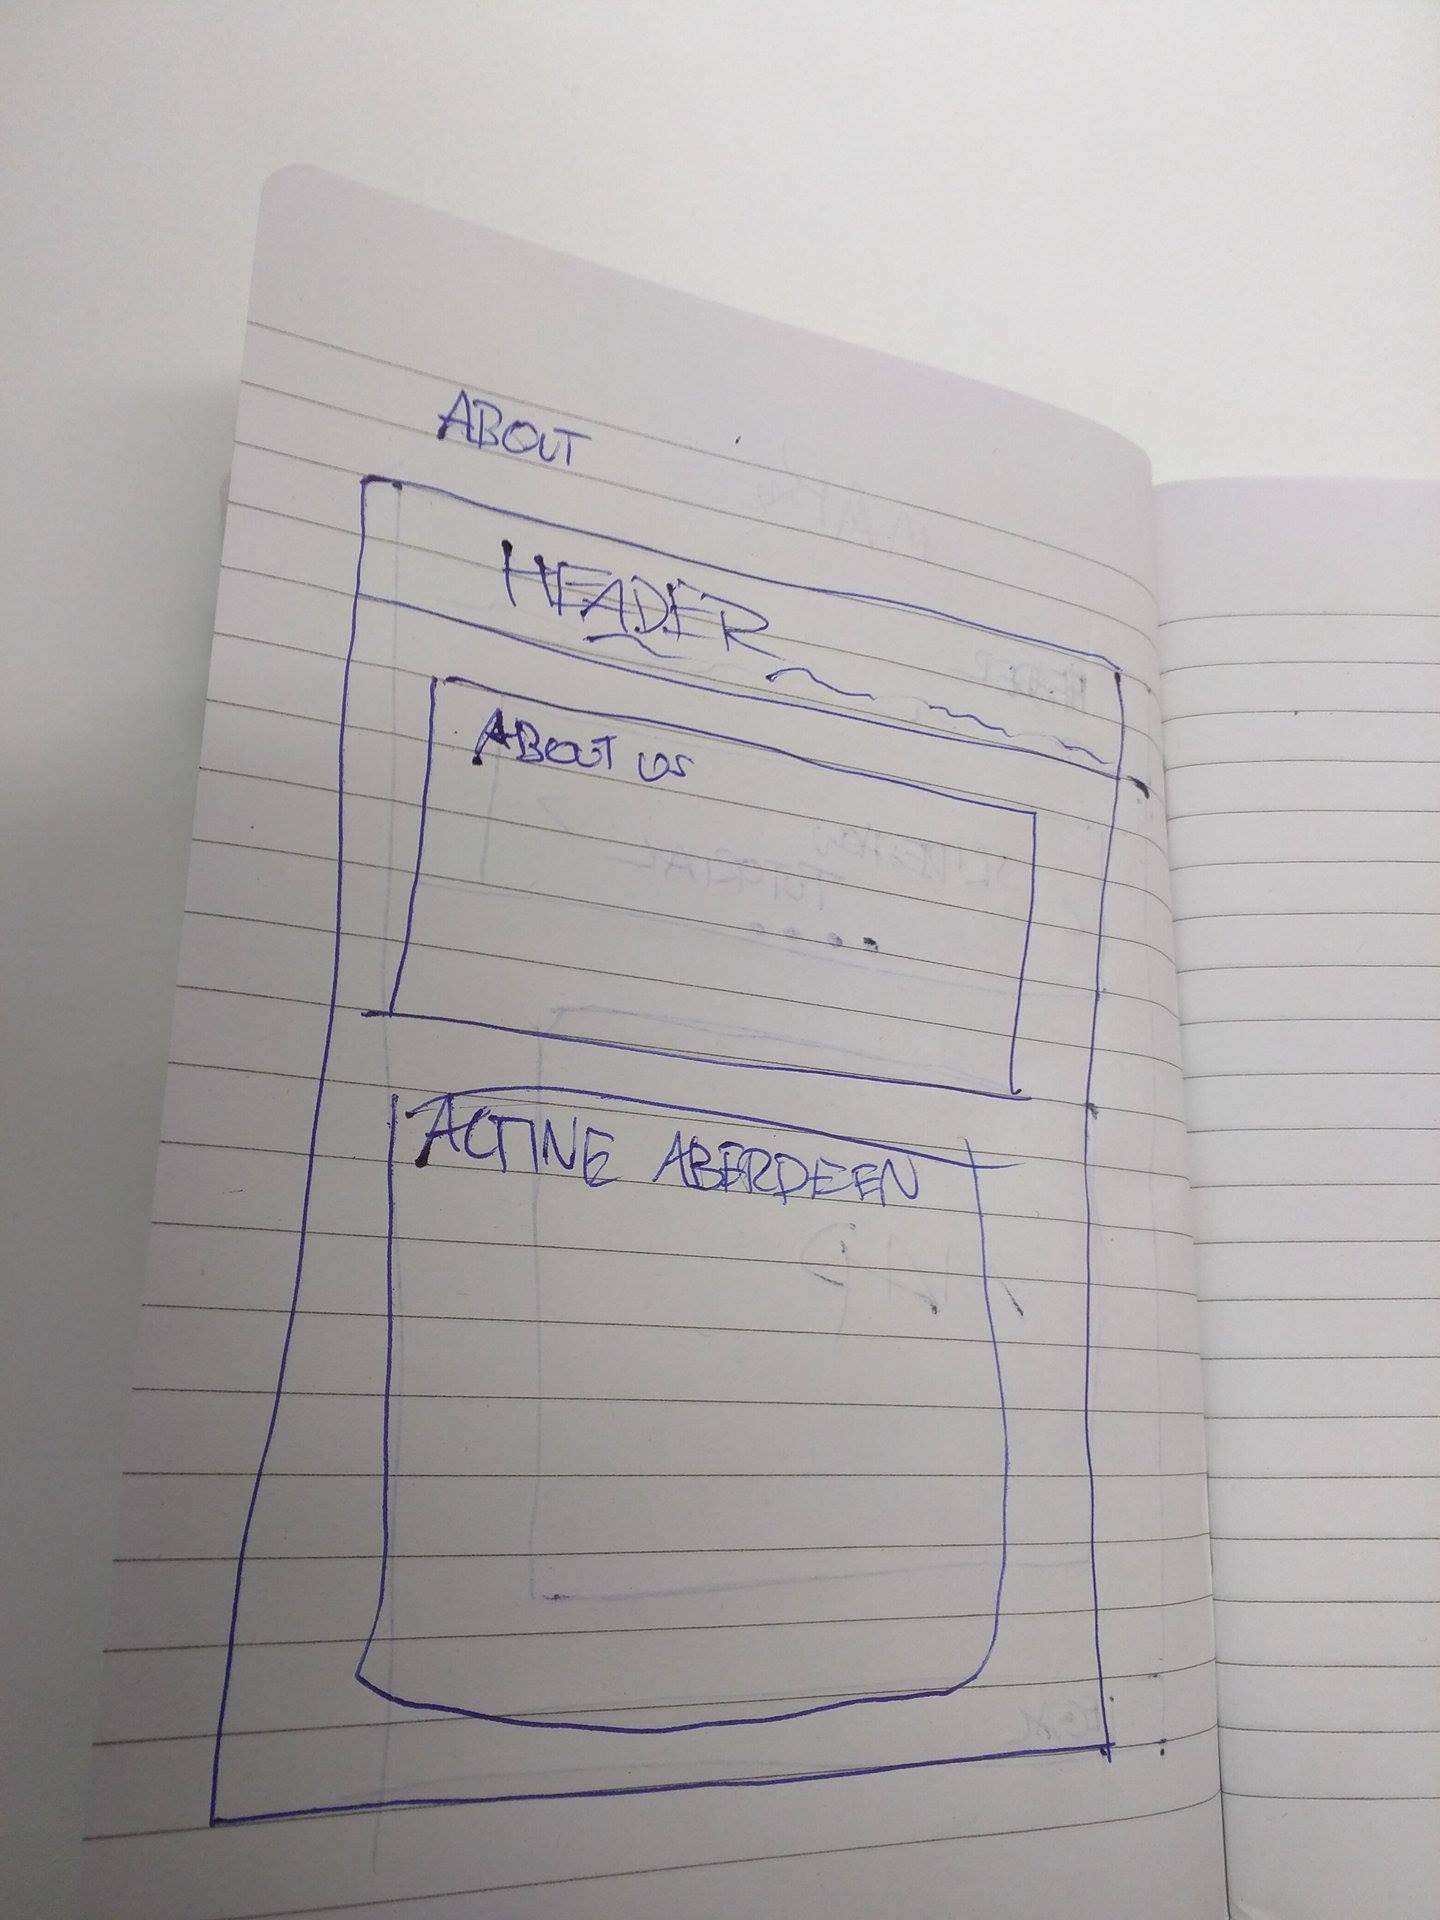 ABOUT
HEADER
ABOUT US
ACTIVE ABERDEEN